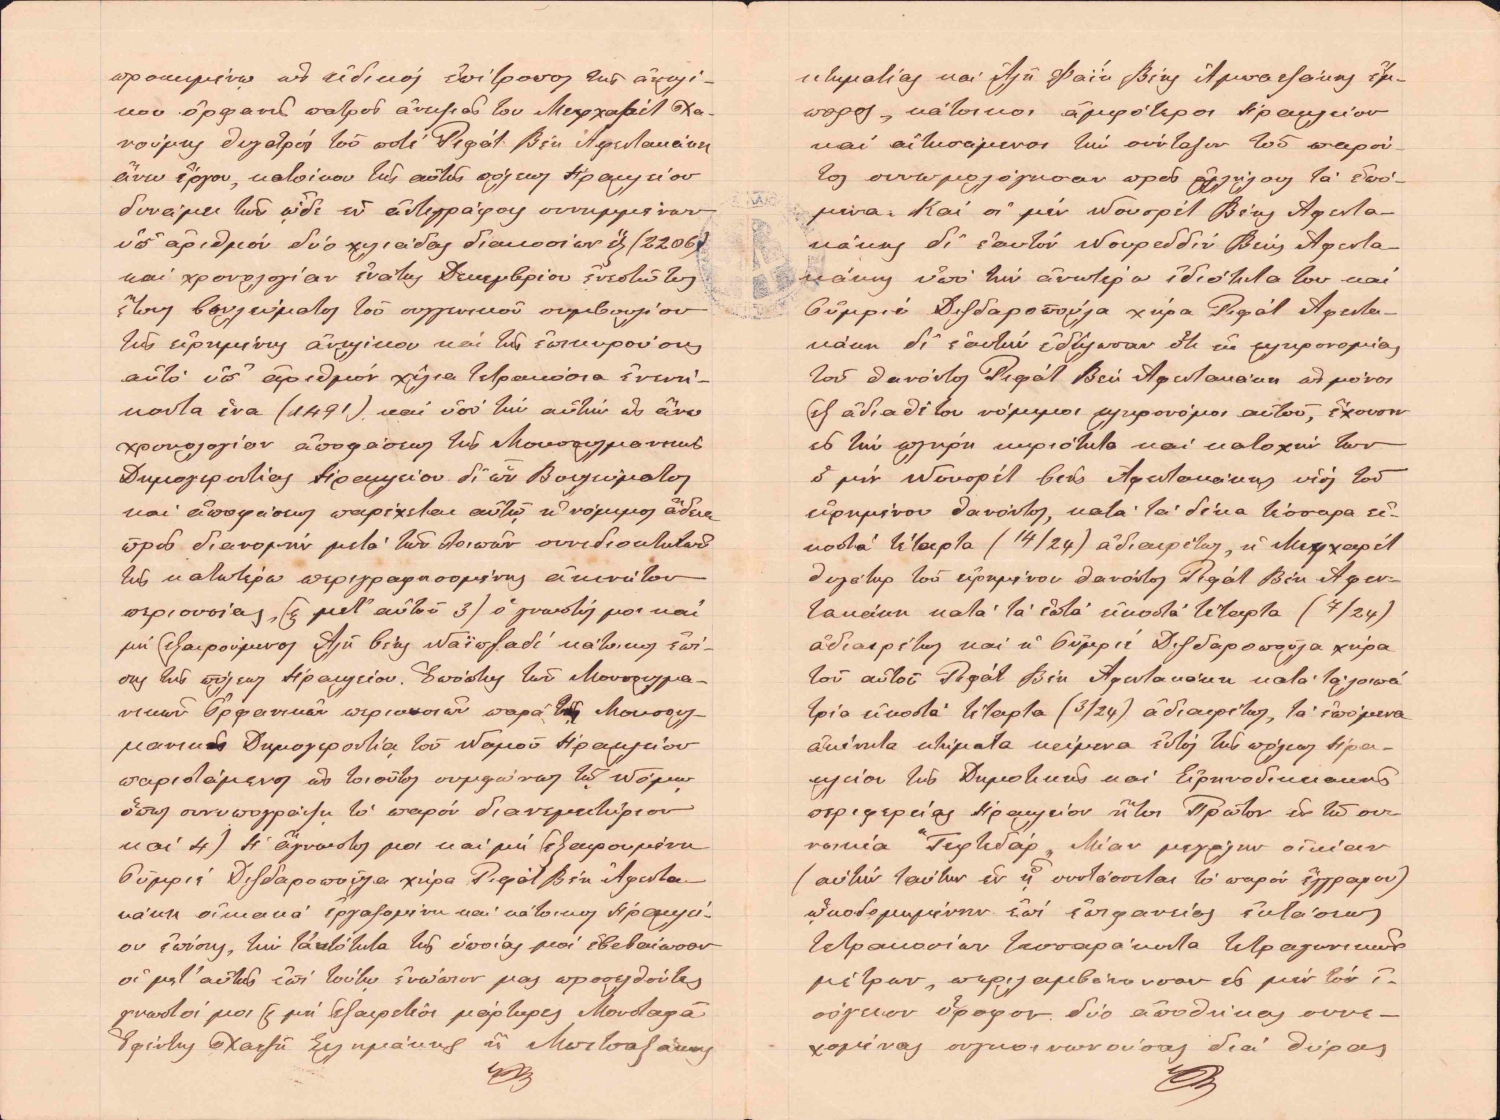 προκειμένῳ ὡς εἰδικός ἐπίτροπος τῆς ἀνηλί-
κου ὀρφανῆς πατρός ἀνεψιᾶς του Μεχχαρέτ Χα-
νούμης θυγατρός τοῦ ποτέ Ῥεφάτ Βέη Ἀφεντακάκη
ἄνευ ἔργου, κατοίκου τῆς αὐτῆς πόλεως Ἡρακλείου
δυνάμει τῶν ὧδε ἐν ἀντιγράφοις συνημμένων
ὑπ' ἀριθμόν δύο χιλιάδας διακοσίων ἕξ (2206)
καί χρονολογίαν ἐνάτης Δεκεμβρίου ἐνεστῶτος
ἔτους βουλεύματος τοῦ συγγενικοῦ συμβουλίου
τῆς εἰρημένης ἀνηλίκου καί τῆς ἐπικυρούσης
αὐτό ὑπ' ἀριθμόν χίλια τετρακόσια ἐνενή-
κοντα ἕνα (1491) καί ὑπό τήν αὐτήν ὡς ἄνω
χρονολογίαν ἀποφάσεως τῆς Μουσουλμανικῆς
Δημογεροντίας Ἡρακλείου δι' ὧν Βουλεύματος
καί ἀποφάσεως παρέχεται αὐτῷ ἡ νόμιμος ἄδεια
πρός διανομήν μετά τῶν λοιπῶν συνιδιοκτητῶν
τῆς κατωτέρω περιγραφησομένης ἀκινήτου
περιουσίας, ἐξ μετ' αὐτοῦ 3) ὁ γνωστός μοι καί
μή ἐξαιρούμενος Ἀλῆ βέης Ναϊπζαδέ κάτοικος ἐπί-
σης τῆς πόλεως Ἡρακλείου. Ἐπόπτης τῶν Μουσουλμα-
νικῶν Ὀρφανικῶν περιουσιῶν παρά τῇ Μουσουλ-
μανικῇ Δημογεροντίᾳ τοῦ Νομοῦ Ἡρακλείου
παριστάμενος ὡς τοιοῦτος συμφώνως τῷ Νόμῳ
ὅπως συνυπογράψῃ τό παρόν διανεμητήριον
καί 4) Ἡ ἄγνωστός μοι καί μή ἐξαιρουμένη
Οὐμριέ Διζδαροπούλα χήρα Ῥεφάτ Βέη Ἀφεντα-
κάκη οἰκιακά ἐργαζομένη καί κάτοικος Ἡρακλεί-
ου ἐπίσης, τήν ταὐτότητα τῆς ὁποίας μοί ἐβεβαίωσαν
οἱ μετ' αὐτῆς ἐπί τούτῳ ἐνώπιον μας προσελθόντες
γνωστοί μοι ἐξ μή ἐξαιρετέοι μάρτυρες Μουσταφᾶ
Ἐφέντης Χατζῆ
κτηματίας καί Ἀλῆ Φαΐκ Βέης Ἀμπατζάκης ἔμ-
πορος, κάτοικοι ἀμφότεροι Ἡρακλείου
καί αἰτησάμενοι τήν σύνταξιν τοῦ παρόν-
τος συνωμολόγησαν πρός ἀλλήλους τά ἑπό-
μενα. Καί οἱ μέν Νουσρέτ Βέης Ἀφεντα-
κάκης δι' ἑαυτόν Νουρεδδίν Βέης Ἀφεντα-
κάκης ὑπό τήν ἀνωτέρω ἰδιότητά του καί
Οὐμριέ Διζδαροπούλα χήρα Ῥεφάτ Ἀφεντα-
κάκη δι' ἑαυτήν ἐδήλωσαν ὅτι ἐκ κληρονομίας
τοῦ θανόντος Ῥεφάτ Βέη Ἀφεντακάκη ὡς μόνοι
ἐξ ἀδιαθέτου νόμιμοι κληρονόμοι αὐτοῦ, ἔχουσιν
εἰς τήν πλήρη κυριότητα καί κατοχήν των
ὁ μέν Νουσρέτ βέης Ἀφεντακάκης υἱός τοῦ
εἰρημένου θανόντος, κατά τά δέκα τέσσαρα εἰ-
κοστά τέταρτα (14/24) ἀδιαιρέτως, ἡ Μεχχαρέτ
θυγάτηρ τοῦ εἰρημένου θανόντος Ῥεφάτ Βέη Ἀφεν-
τακάκη κατά τά ἑπτά εἰκοστά τέταρτα (7/24)
ἀδιαιρέτως καί ἡ Οὐμριέ Διζδαροπούλα χήρα
τοῦ αὐτοῦ Ῥεφάτ Βέη Ἀφεντακάκη κατά τά λοιπά
τρία εἰκοστά τέταρτα (3/24) ἀδιαιρέτως, τά ἑπόμενα
ἀκίνητα κτήματα κείμενα ἐντός τῆς πόλεως Ἡρα-
κλείου τῆς Δημοτικῆς καί Εἰρηνοδικειακῆς
περιφερείας Ἡρακλείου ἤτοι Πρῶτον ἐν τῇ συ-
νοικίᾳ "Τεφτεδάρ" Μίαν μεγάλην οἰκίαν
(αὐτήν ταύτην ἐν ᾗ συντάσσεται τό παρόν ἔγγραφον)
ᾠκοδομημένην ἐπί ἐπιφανείας ἐκτάσεως
τετρακοσίων τεσσαράκοντα τετραγωνικῶν
μέτρων, περιλαμβάνουσαν εἰς μέν τόν ἰ-
σόγειον ὄροφον δύο ἀποθήκας συνε-
χομένας συγκοινωνούσας διά θύρας